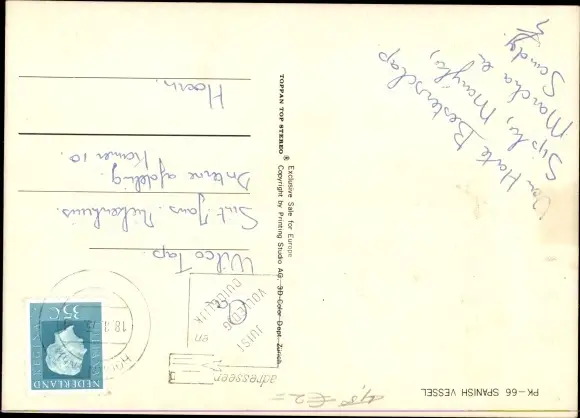 PK-66 SPANISH VESSEL
Van Harte Beterschap
Sijtse, Marijke,
Marcha en
Sandy.
TOPPAN TOP STEREO ® Exclusive Sale for Europe
Copyright by Printing Studio AG. 3D-Color Dept. Zürich
adresseer
JUIST
VOLLEDIG
en
DUIDELIJK
NEDERLAND
35C
18.
Wilco Tap.
Sint Jans Ziekenhuis.
Interne afdeling
Kamer 10.
Hoorn.